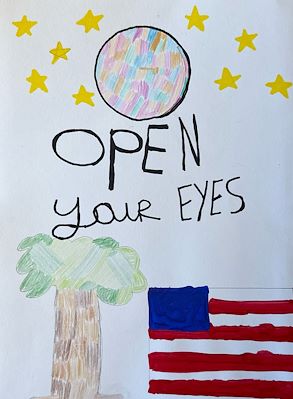 OPEN
your EYES